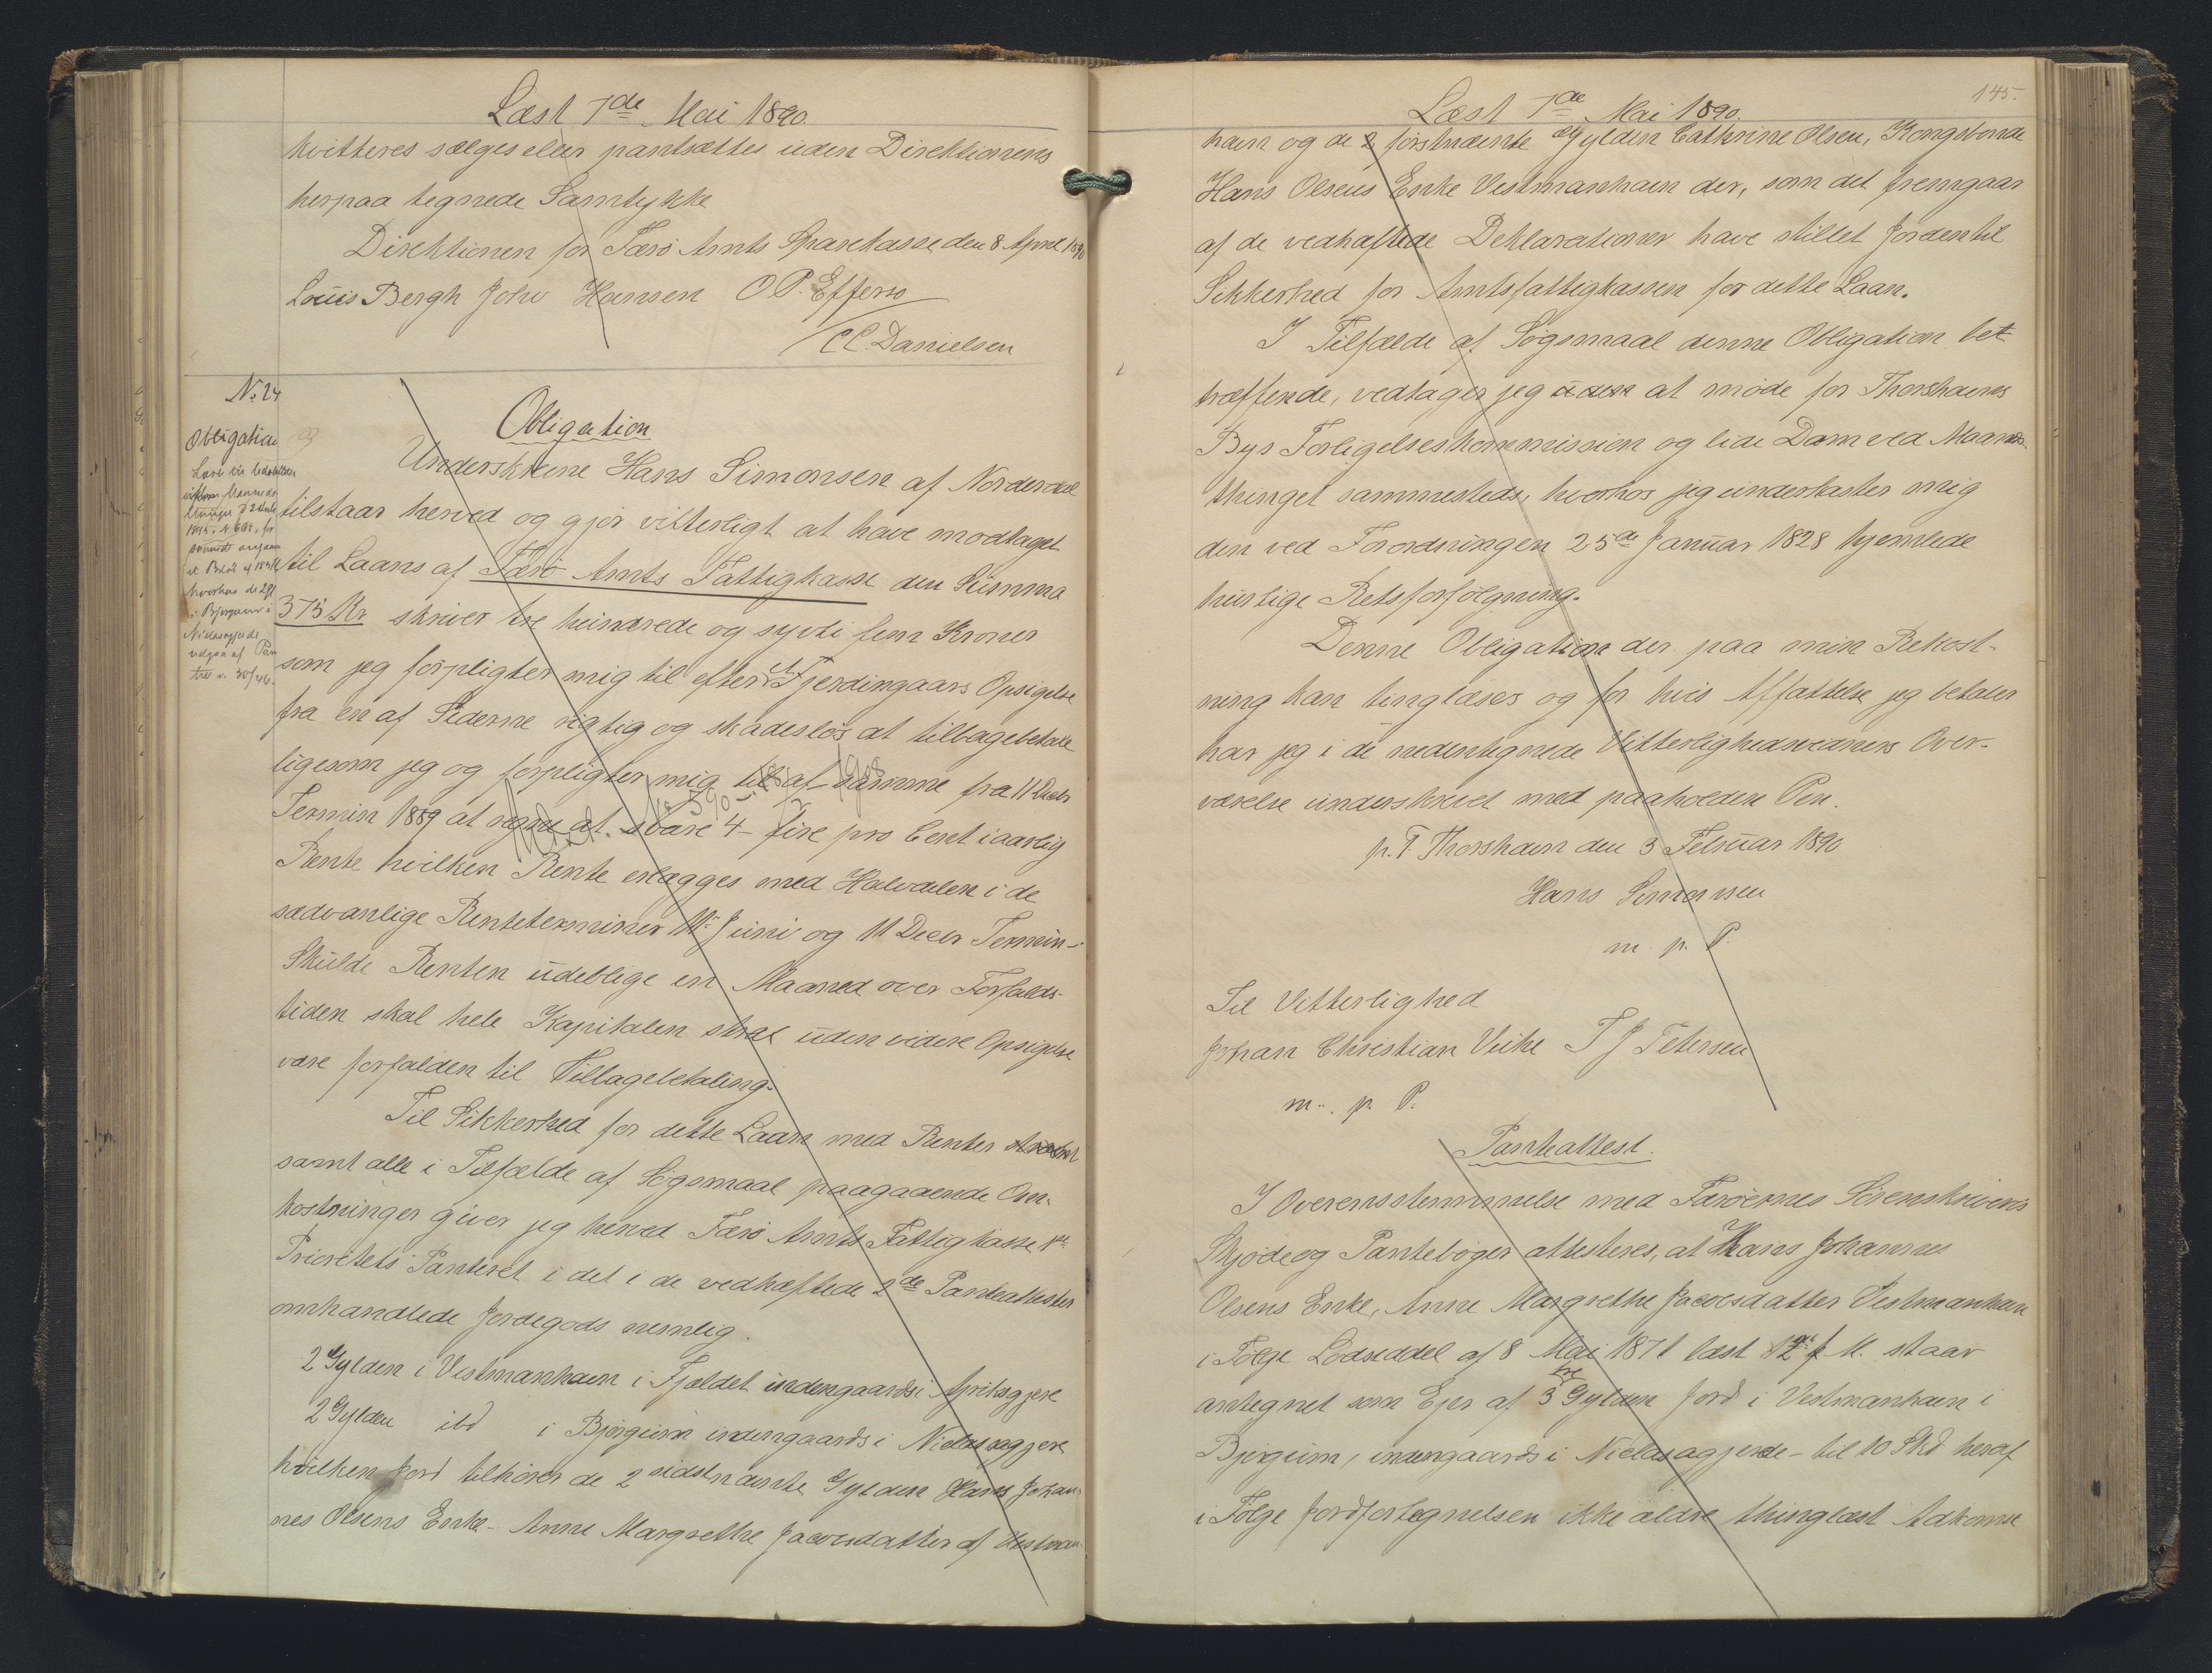 Læst 7de Mai 1890.
kvitteres sælges eller pantsættes uden Direktionens
herpaa tegnede Samtykke
Direktionen for Færø Amts Sparekasse den 8 April 1890
Louis Bergh John Hansen O. P. Effersø
C C Danielsen
No 24
Obligation
Obligation
Underskrevne Hans Simonsen af Norderdal
tilstaar herved og gjör vitterligt at have modtaget
til Laans af Færö Amts Fattigkasse den Summa
375 Kr skriver tre hundrede og sydti fem Kroner
som jeg forpligter mig til efter et Fjerdingaars Opsigelse
fra en af Siderne rigtig og skadeslös at tilbagebetale
ligesom jeg og forpligter mig til af samme fra 11 Decbr
Termin 1889 at svare 4 - fire pro Cent i aarlig
Rente hvilken Rente erlægges med Halvdelen i de
sædvanlige Renteterminer 11 Juni og 11 Decbr Termin -
Skulde Renten udeblige en Maaned over Forfalds-
tiden skal hele Kapitalen skal uden videre Opsigelse
være forfalden til Tillagebetaling.
Til Sikkerhed for dette Laan med Renter
samt alle i Tilfælde af Søgsmaal paagaaende Om-
kostninger giver jeg herved Færö Amts Fattigkasse 1ste
Prioritets Panteret i det i de vedhæftede 2de Panteattester
omhandlede Jordegods nemlig.
2 Gylden i Vestmanhavn i Fjældet indengaards i
2 Gylden ibd i Bjørgum indengaards i
hvilken Jord tilhörer de 2 sidstnævnte Gylden Hans Johan-
nes Olsens Enke - Anne Margrethe Jacobsdatter af Vestman-
145.
Læst 7de Mai 1890.
havn og de 2 förstnævnte Gylden Cathrine Olsen, Kongsbonde
Hans Olsens Enke Vestmanhavn der, som det fremgaar
af de vedhæftede Deklarationer have stillet Jorden til
Sikkerhed for Amtsfattigkassen for dette Laan.
I Tilfælde af Søgsmaal denne Obligation bet-
træffende, vedtager jeg at møde for Thorshavns
Bys Forligelseskommission og lide Dom ved Maaneds-
thinget sammesteds, hvorhos jeg underkaster mig
den ved Forordningen 25de Januar 1828 hjemlede
hurtige Retsforfölgning.
Denne Obligation der paa min Bekost-
ning kan tinglæses og for hvis Affattelse jeg betaler
har jeg i de nedentegnede Vitterlighedsvidners Over-
værelse underskrevet med paaholden Pen.
p. T. Thorshavn den 3 Februar 1890
Hans Simonsen
m. p. P.
Til Vitterlighed
Johan Christian Veihe T J Petersen
m. p. P.
Panteattest.
I Overensstemmelse med Færöernes Sörenskriveris
Skjøde og Pantebøger attesteres, at Hans Johannes
Olsens Enke, Anne Margrethe Jacobsdatter Vestmanhavn
i Følge Lodseddel af 8 Mai 1871 læst f. M. staar
antegnet som Ejer af 3 tre Gylden Jord i Vestmanhavn i
Bjørgum, indengaards i - til 10 Skd heraf
i Følge Jordfortegnelsen ikke ældre thinglæst Adkomst